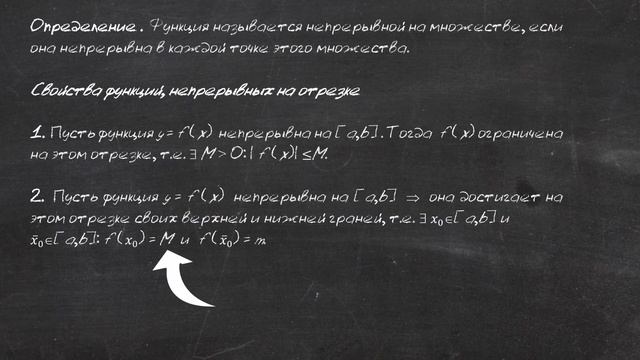 Определение. Функция называется непрерывной на множестве, если
она непрерывна в каждой точке этого множества.
Свойства функций, непрерывных на отрезке
1. Пусть функция y = f(x) непрерывна на [a,b]. Тогда f(x) ограничена
на этом отрезке, т.е. ∃ M > 0: | f(x)| ≤M.
2. Пусть функция y = f(x) непрерывна на [a,b] ⇒ она достигает на
этом отрезке своих верхней и нижней граней, т.е. ∃ x₀∈[a,b] и
x̄₀∈[a,b]: f(x₀) = M и f(x̄₀) = m